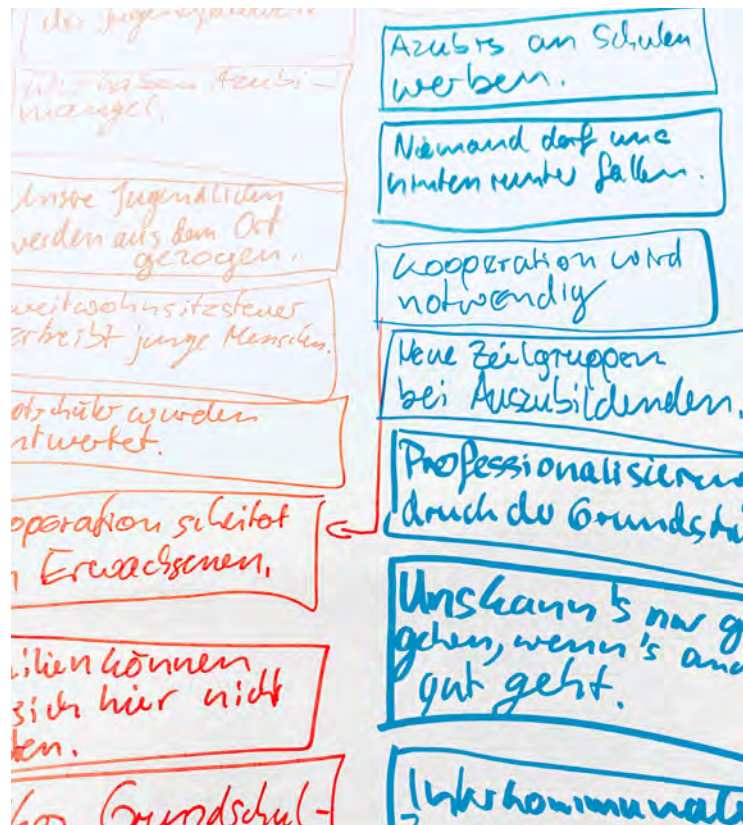 der Jugend
wir haben Azubi-
mangel.
Unsre Jugendlichen
werden aus dem Ort
gezogen.
weitwohnsitzsteuer
ertreibt junge Menschen.
wurden
ntwertet.
operation scheitet
Erwachsenen.
ilien können
sich hier nicht
ten.
Grundschul-
Azubis an Schulen
werben.
Niemand darf uns
hinten runter fallen.
Kooperation wird
notwendig
Neue Zielgruppen
bei Auszubildenden.
Professionalisierun
druck der Grundstü
Uns kann's nur g
gehen, wenn's and
gut geht.
Interkommunale